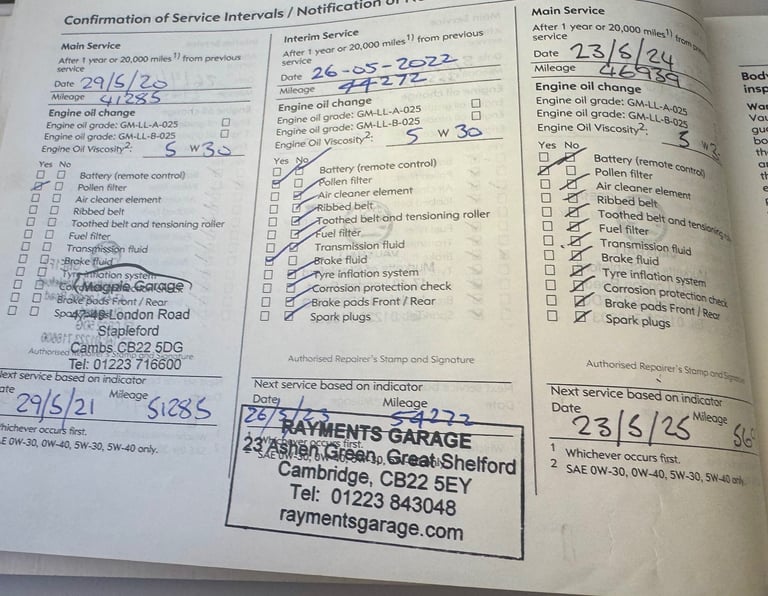 Confirmation of Service Intervals / Notification of
Main Service
After 1 year or 20,000 miles1) from previous
service
Date 29/5/20
Mileage 41285
Engine oil change
Engine oil grade: GM-LL-A-025
Engine oil grade: GM-LL-B-025
Engine Oil Viscosity2: 5 W 30
Yes No
Battery (remote control)
Pollen filter
Air cleaner element
Ribbed belt
Toothed belt and tensioning roller
Fuel filter
Transmission fluid
Brake fluid
Tyre inflation system
Magpie Garage
Brake pads Front / Rear
47-49 London Road
Stapleford
Cambs CB22 5DG
Authorised Repairer's Stamp and Signature
Tel: 01223 716600
Next service based on indicator
Date Mileage
29/5/21 51285
Whichever occurs first.
SAE 0W-30, 0W-40, 5W-30, 5W-40 only.
Interim Service
After 1 year or 20,000 miles1) from previous
service
Date 26-05-2022
Mileage 44272
Engine oil change
Engine oil grade: GM-LL-A-025
Engine oil grade: GM-LL-B-025
Engine Oil Viscosity2: 5 W 30
Yes No
Battery (remote control)
Pollen filter
Air cleaner element
Ribbed belt
Toothed belt and tensioning roller
Fuel filter
Transmission fluid
Brake fluid
Tyre inflation system
Corrosion protection check
Brake pads Front / Rear
Spark plugs
Authorised Repairer's Stamp and Signature
Next service based on indicator
Date Mileage
26/5/23 54272
Whichever occurs first.
RAYMENTS GARAGE
Green, Great Shelford
Cambridge, CB22 5EY
Tel: 01223 843048
raymentsgarage.com
Main Service
After 1 year or 20,000 miles1) from previous
service
Date 23/5/24
Mileage 46939
Engine oil change
Engine oil grade: GM-LL-A-025
Engine oil grade: GM-LL-B-025
Engine Oil Viscosity2: 5 W
Yes No
Battery (remote control)
Pollen filter
Air cleaner element
Ribbed belt
Toothed belt and tensioning
Fuel filter
Transmission fluid
Brake fluid
Tyre inflation system
Corrosion protection check
Brake pads Front / Rear
Spark plugs
Authorised Repairer's Stamp and Signature
Next service based on indicator
Date Mileage
23/5/25 56
1 Whichever occurs first.
2 SAE 0W-30, 0W-40, 5W-30, 5W-40 only.
Body
insp